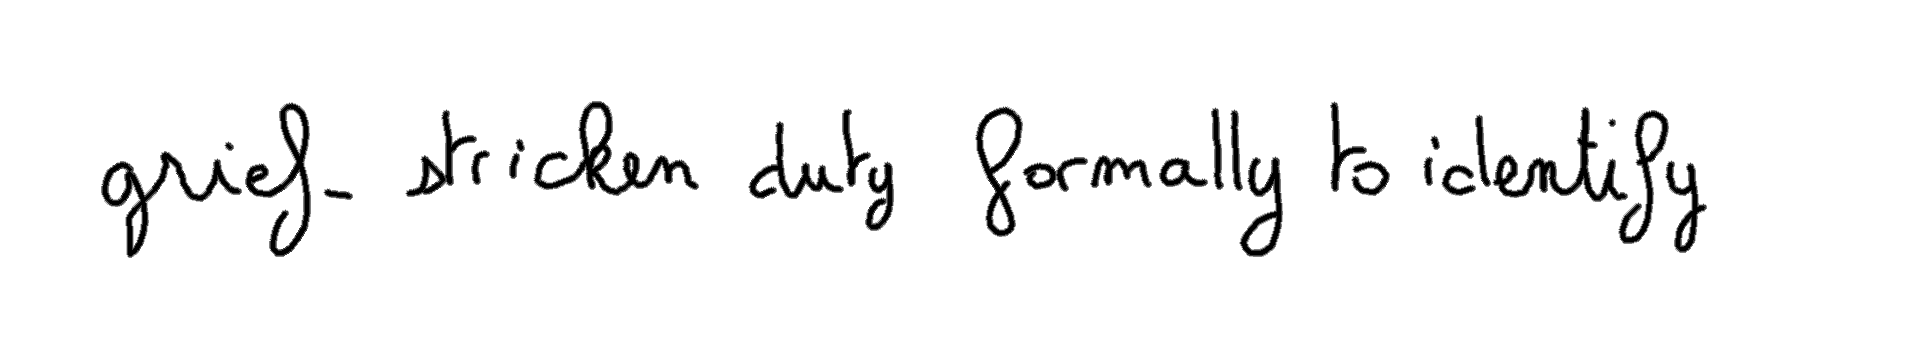 grief-stricken duty formally to identify